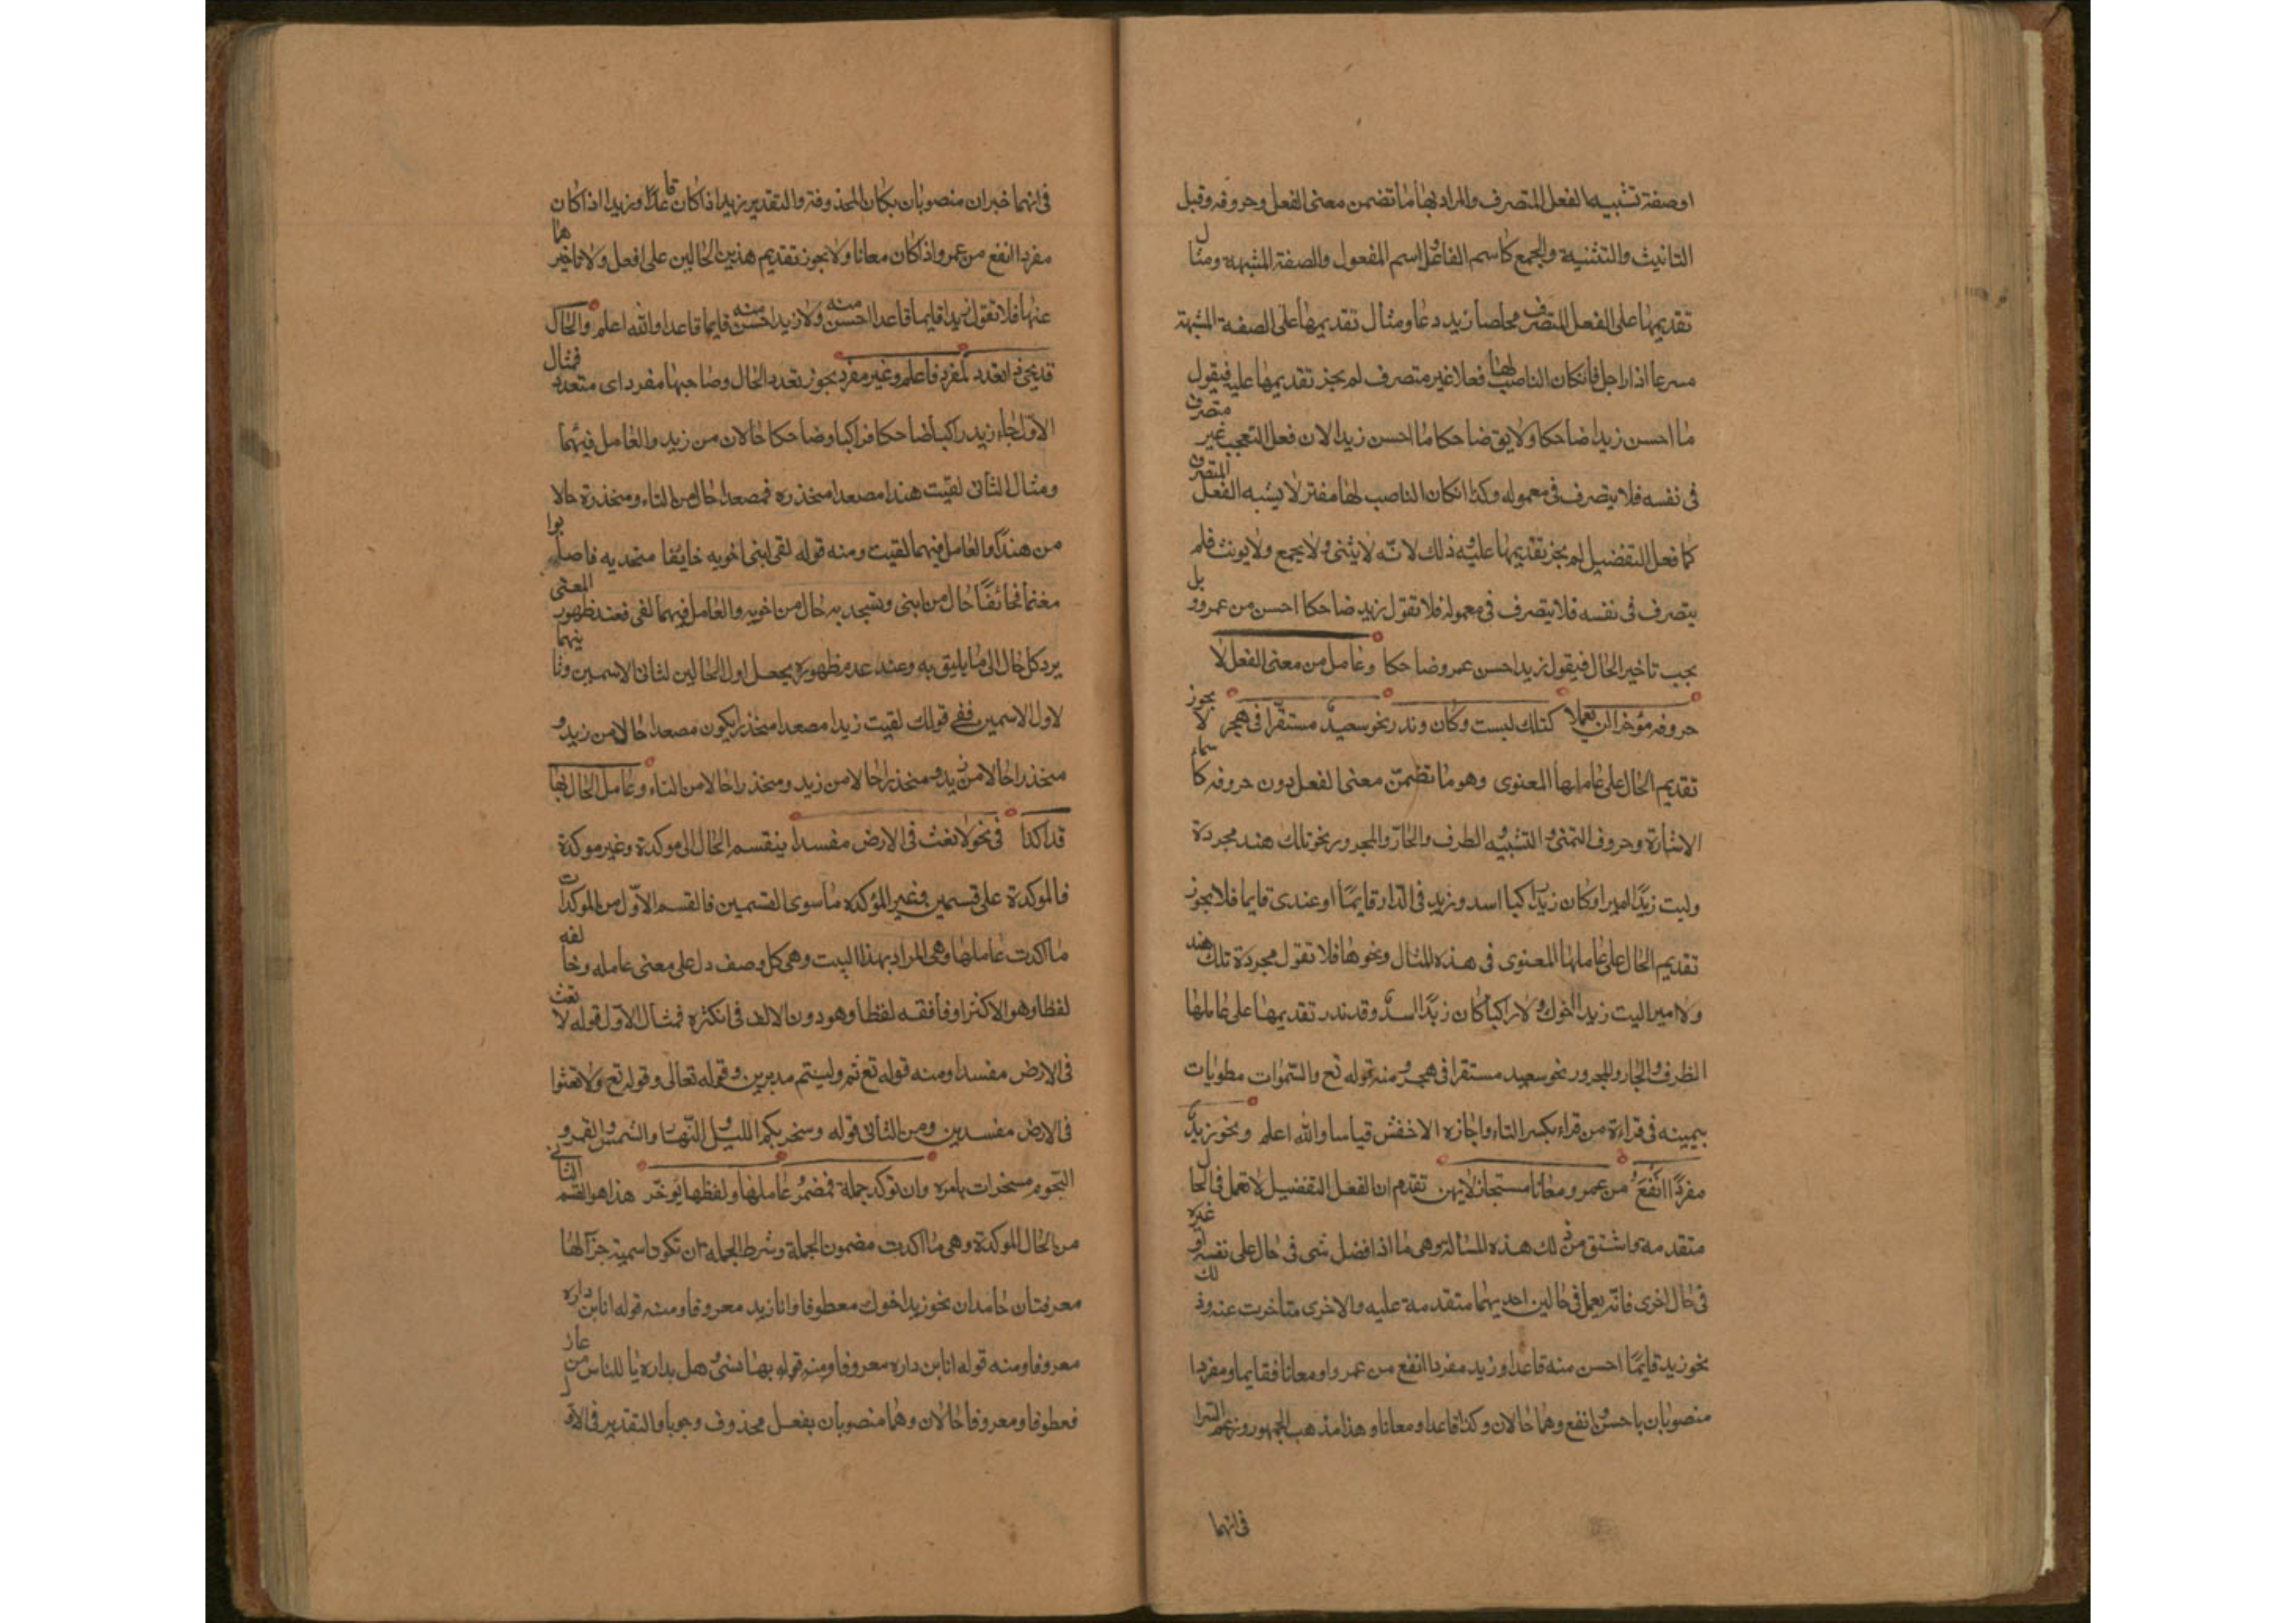 او صفة تشبيه الفعل المتصرف والمراد بها ما تضمن معنى الفعل وحروفه وقبل
التانيث والتثنية والجمع كاسم الفاعل واسم المفعول والصفة المشبهة ومثال
تقديمها على الفعل المتصرف مخلصا زيد دعا ومثال تقديمها على الصفة المشبهة
مسرعا اذا راحل فانكان الناصب لها فعلا غير متصرف لم يجز تقديمها عليه فيقول
ما احسن زيدا ضاحكا ولا يق ضاحكا ما احسن زيدا لان فعل التعجب غير متصرف
فى نفسه فلا يتصرف فى معموله وكذا انكان الناصب لها لا يشبه الفعل المتصرف
كافعل التفضيل لم يجز تقديمها عليه وذلك لانّه لا يثنى ولا يجمع ولا يونث فلم
يتصرف فى نفسه فلا يتصرف فى معموله فلا تقول زيد ضاحكا احسن من عمرو بل
يجب تاخير الحال فيقول زيد احسن عمرو ضاحكا وعامل من معنى الفعل لا
حروفه مؤخرا لن يعملا كتلك ليست وكان وندر نحو سعيد مستقرا فى هجر لا يجوز
تقديم الحال على عاملها المعنوى وهو ما تضمن معنى الفعل دون حروفه كاسماء
الاشارة وحروف التمنى والتشبيه والظرف والجار والمجرور نحو تلك هند مجردة
وليت زيدًا اميرا وكان زيدا راكبا اسد وزيد فى الدار قايمًا او عندى قايما فلا يجوز
تقديم الحال على عاملها المعنوى فى هذه المثال ونحوها فلا تقول مجردة تلك هند
ولا اميرا ليت زيدا اخوك ولا راكبا كان زيدًا اسدٌ وقد ندر تقديمها على عاملها
الظرف والجار والمجرور نحو سعيد مستقرا فى هجر ومنه قوله تع والسموات مطويات
بيمينه فى قراءة من قراء بكسر التاء واجازه الاخفش قياسا والله اعلم ونحو زيدٌ
مفردًا انفعُ من عمرو معانا مستجاز لا يهن تقدم ان الفعل التفضيل لا تعمل فى الحال
متقدمه واشتق من ذلك هذه المسالة وهى ما اذا فضل شى فى حال على نفسه او غيره
فى حال اخرى فانّه يعمل فى حالين احديهما متقدمة عليه والاخرى متاخرت عنه وذلك
نحو زيد قايمًا احسن منه قاعدا وزيد مفردا انفع من عمرو او معانا فقايما ومفردا
منصوبان باحسن وانفع وهما حالان وكذا قاعدا ومعانا وهذا مذهب الجمهور وزعم السرا
فى انهما
فى انهما خبران منصوبان بكان المحذوفة والتقدير زيد اذا كان قاعدًا وزيد اذا كان
مفردا انفع من عمرو اذا كان معانا ولا يجوز تقديم هذين الحالين على افعل ولا تاخيرهما
عنها فلا تقول زيد قايما قاعدا احسن منه ولا زيد احسن منه قايما قاعدا والله اعلم والحال
قد يجئ ذا تعدد لمفرد فاعلم وغير مفرد يجوز تعدد الحال وصاحبها مفرد اى متعدد فمثال
الاوّل جاء زيد راكبا ضاحكا فراكبا وضاحكا حالان من زيد والعامل فيهما
ومثال الثانى لقيت هندا مصعدا منحذره فمصعدا حال من التاء ومنحذرة حالا
من هند والعامل فيهما لقيت ومنه قوله لقى ابنى اخويه خايفا منجديه فاصابوا
مغنما فخائفًا حال من ابنى ومنجديه حال من اخويه والعامل فيهما لقى فعند ظهور المعنى
يرد كل حال الى ما يليق به وعند عدم ظهوره يجعل اول الحالين لثانى الاسمين وثانيهما
لاول الاسمين ففى قولك لقيت زيدا مصعدا منحذرا يكون مصعدا حالا من زيد و
منحذرا حالا من زيد ومنحذرا حالا من زيد ومنحذرا حالا من التاء وعامل الحال بها
قد اكدا فى نحو لا تعث فى الارض مفسدا ينقسم الحال الى موكدة وغير موكدة
فالموكدة على قسمين وغير المؤكده ما سوى القسمين فالقسم الاوّل من الموكدات
ما اكدت عاملها وهى المراد بهذا البيت وهى كل وصف دل على معنى عامله وخالفه
لفظا وهو الاكثر او فافقه لفظا وهو دون الالف فى انكثره فمثال الاوّل قوله لا تعث
فى الارض مفسدا ومنه قوله تع ثم وليتم مدبرين وقوله تعالى وقوله تع ولا تعثوا
فى الارض مفسدين ومن الثانى قوله وسخر بكم الليل والنّهار والشمس والقمر و
النجوم مسخرات بامره وان توكد جملة فمضمر عاملها ولفظها يوخر هذا هو القسم الثانى
من الحال الموكدة وهى ما اكدت مضمون الجملة وشرط الجمله ان تكون اسمية جزآلها
معرفتان جامدان نحو زيد اخوك معطوفا وانا زيد معروفا ومنه قوله انا بن داره
معروفا ومنه قوله انا بن داره معروفا ومنه قوله بها نسبى وهل بداره يا للناس من عار
فعطوفا ومعروفا حالان وهما منصوبان بفعل محذوف وجوبا والتقدير فى الاول